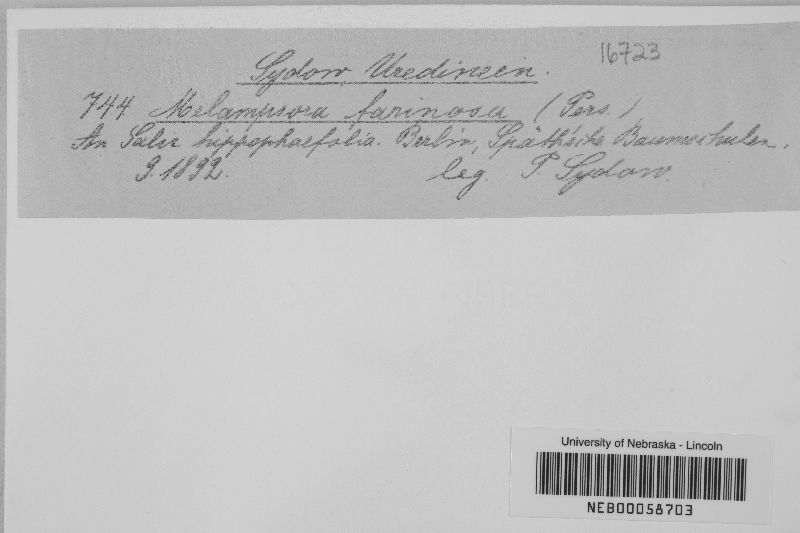 16723
Sydow, Uredineen.
744 Melampsora farinosa (Pers.)
An Salix hippophaefolia. Berlin, Späth'sche Baumschulen.
9.1892. leg. P. Sydow.
University of Nebraska - Lincoln
NEB00058703